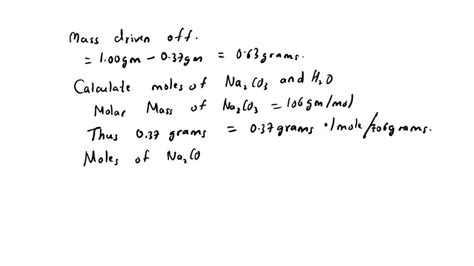 Mass driven off.
= 1.00gm - 0.37gm = 0.63grams.
Calculate moles of Na₂CO₃ and H₂O
Molar Mass of Na₂CO₃ = 106gm/mol
Thus 0.37 grams = 0.37grams • 1mole/106grams.
Moles of Na₂CO